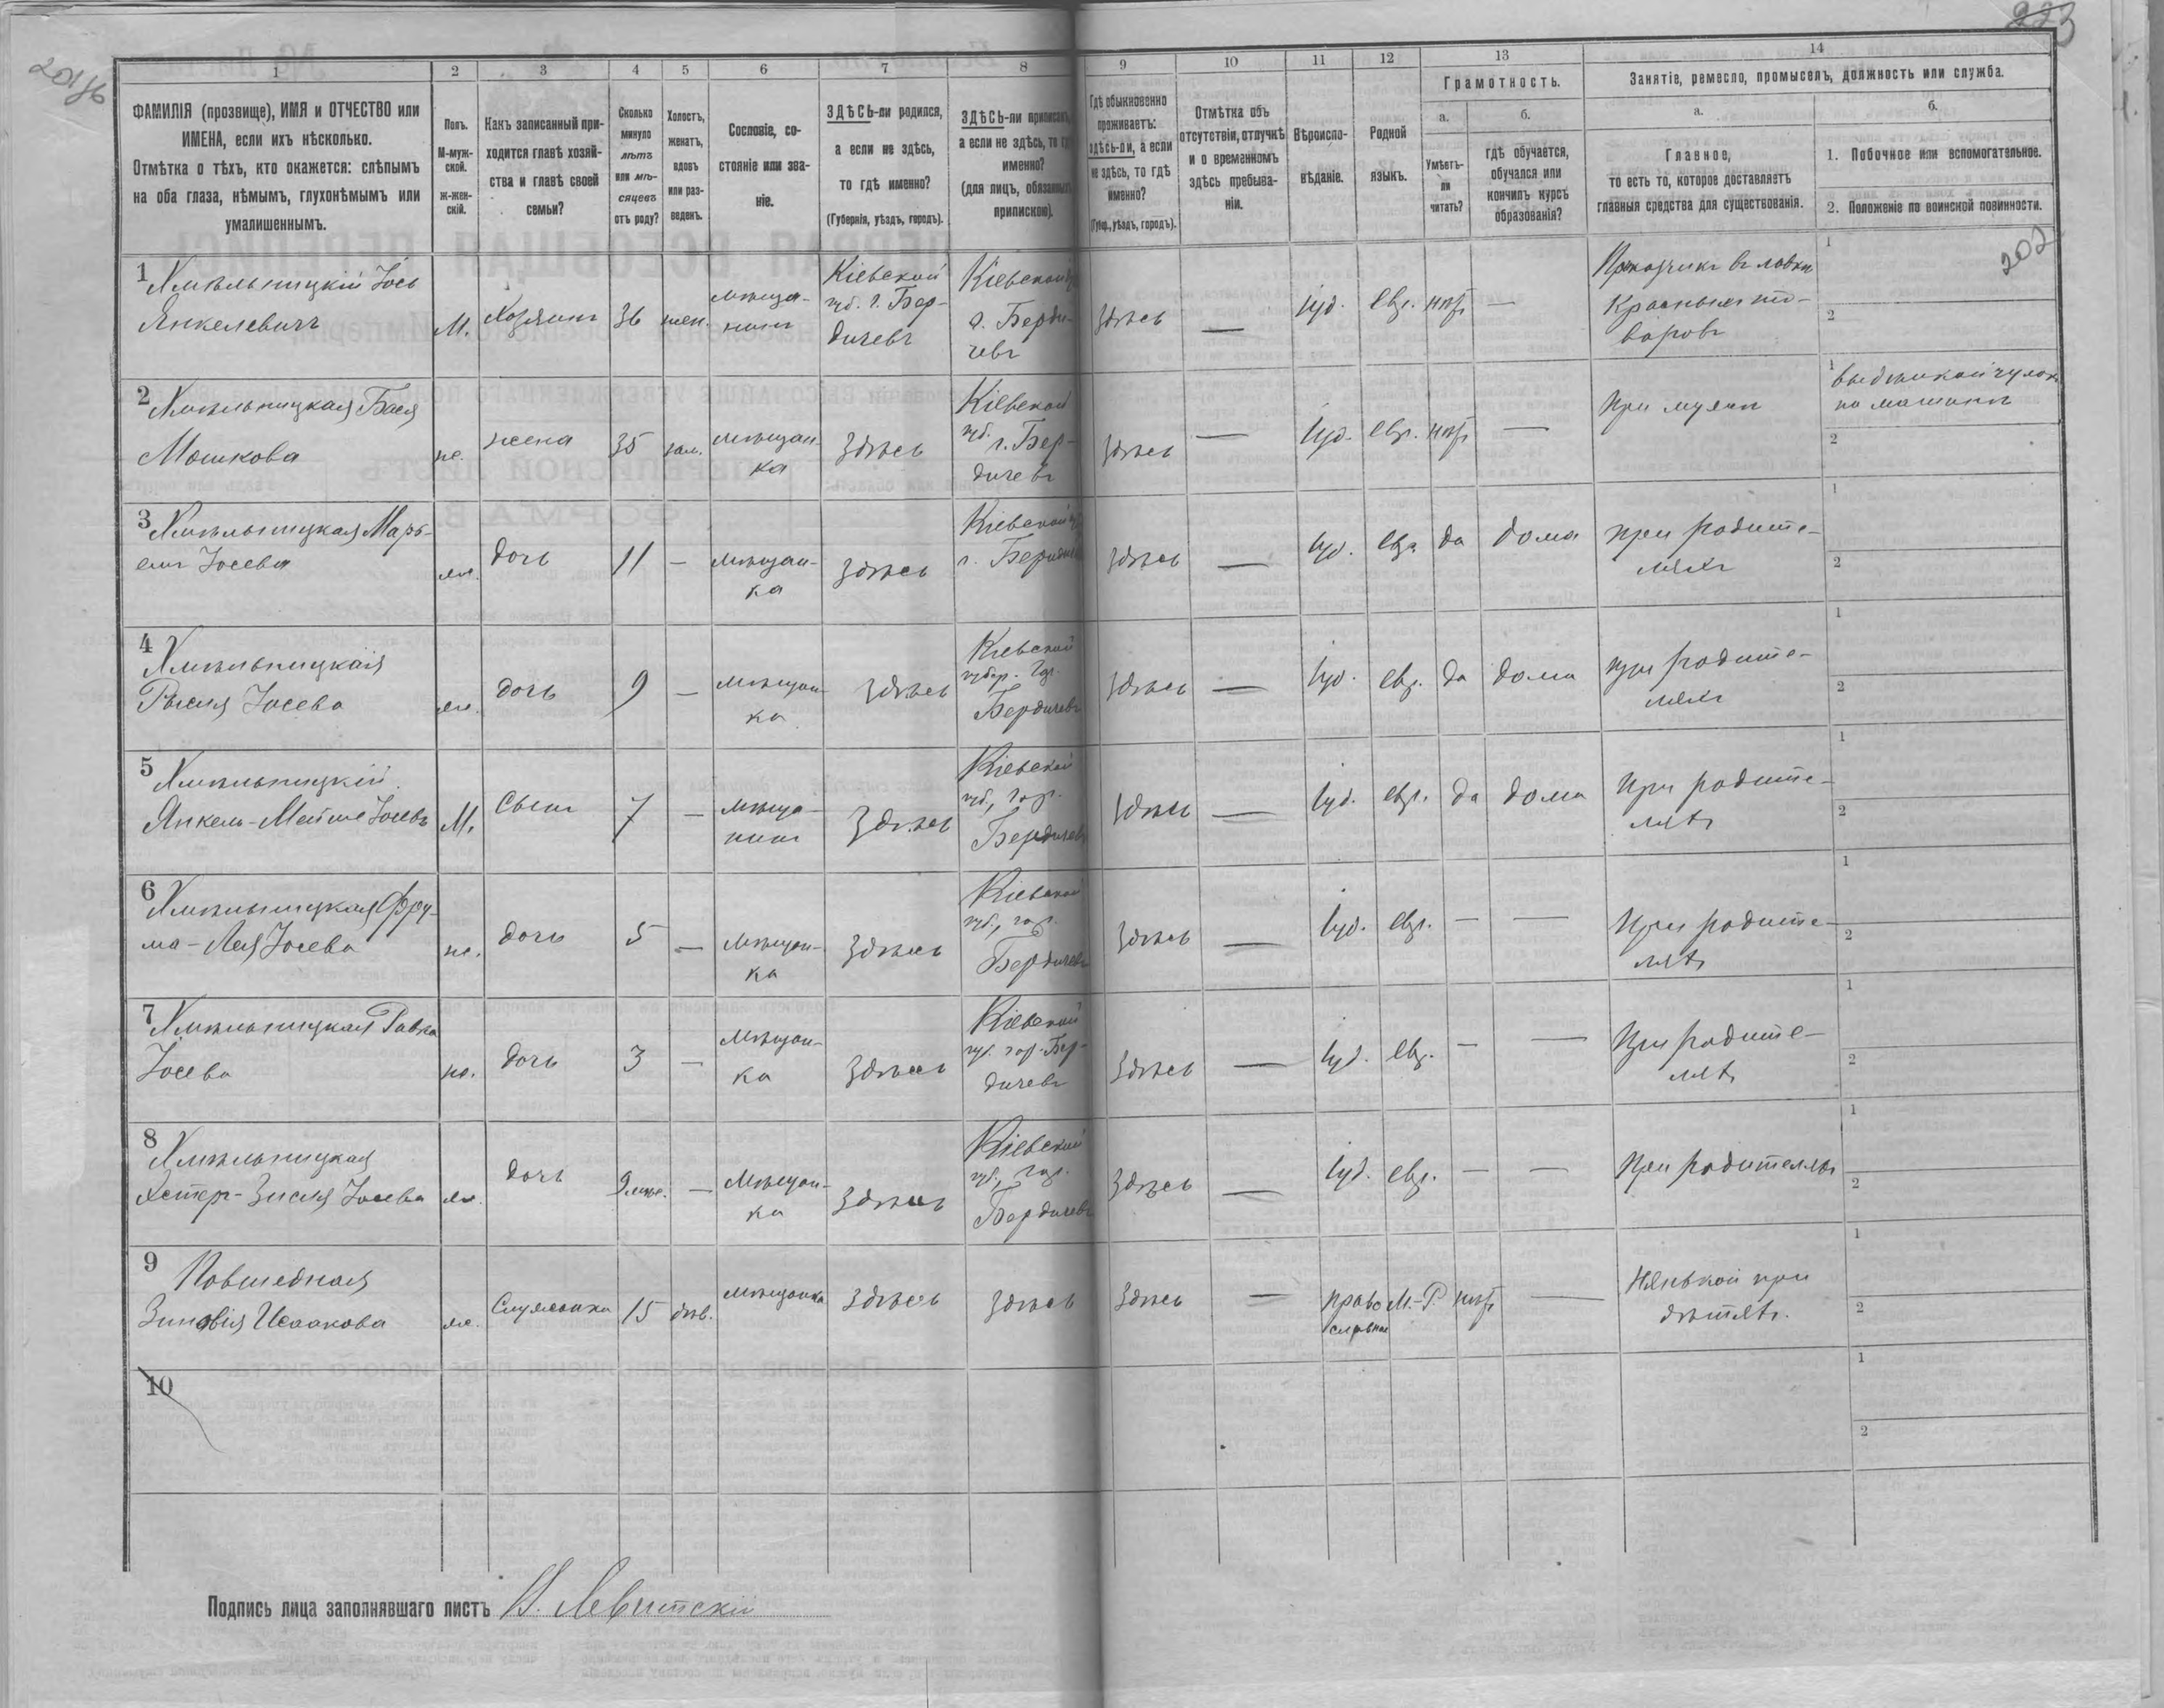 223
201 об
1 2 3 4 5 6 7 8 9 10 11 12 13 14
ФАМИЛІЯ (прозвище), ИМЯ и ОТЧЕСТВО или
ИМЕНА, если ихъ нѣсколько.
Отмѣтка о тѣхъ, кто окажется: слѣпымъ
на оба глаза, нѣмымъ, глухонѣмымъ или
умалишеннымъ.
Полъ.
М-муж-
ской.
Ж-жен-
скій.
Какъ записанный при-
ходится главѣ хозяй-
ства и главѣ своей
семьи?
Сколько
минуло
лѣтъ
или мѣ-
сяцевъ
отъ роду?
Холостъ,
женатъ,
вдовъ
или раз-
веденъ.
Сословіе, со-
стояніе или зва-
ніе.
ЗДѢСЬ-ли родился,
а если не здѣсь,
то гдѣ именно?
(Губернія, уѣздъ, городъ).
ЗДѢСЬ-ли приписанъ,
а если не здѣсь, то гдѣ
именно?
(для лицъ, обязанныхъ
припискою).
Гдѣ обыкновенно
проживаетъ:
здѣсь-ли, а если
не здѣсь, то гдѣ
именно?
(Губер., уѣздъ, городъ).
Отмѣтка объ
отсутствіи, отлучкѣ
и о временномъ
здѣсь пребыва-
ніи.
Вѣроиспо-
вѣданіе.
Родной
языкъ.
Грамотность.
а.
Умѣетъ-
ли
читать?
б.
гдѣ обучается,
обучался или
кончилъ курсъ
образованія?
Занятіе, ремесло, промыселъ, должность или служба.
а.
Главное,
то есть то, которое доставляетъ
главныя средства для существованія.
б.
1. Побочное или вспомогательное.
2. Положеніе по воинской повинности.
202
1 Хмѣльницкій Іось
Янкелевичъ
М. Хозяинъ 36 жен. мѣща-
нинъ
Кіевской
губ. г. Бер-
дичевъ
Кіевской
г. Берди-
чевъ
здѣсь — Іуд. евр. нѣтъ —
Приказчикъ въ лавкѣ
Красныхъ то-
варовъ
1
2
2 Хмѣльницкая Бася
Мошкова
ж. жена 35 зам. мѣщан-
ка
Здѣсь
Кіевской
губ. г. Бер-
дичевъ
здѣсь — Іуд. евр. нѣтъ —
При мужѣ
1
на машинѣ
2
3 Хмѣльницкая Марь-
емъ Іосева
ж. дочь 11 — мѣщан-
ка
здѣсь
Кіевской
г. Бердичевъ
здѣсь — Іуд. евр. да дома
при родите-
ляхъ
1
2
4 Хмѣльницкая
Рыся Іосева
ж. дочь 9 — мѣщан-
ка
здѣсь
Кіевской
губер. гор.
Бердичевъ
здѣсь — Іуд. евр. да дома
при родите-
ляхъ
1
2
5 Хмѣльницкій
Янкель-Мойше Іосевъ
М. Сынъ 7 — мѣща-
нинъ
Здѣсь
Кіевской
губ., гор.
Бердичевъ
здѣсь — Іуд. евр. да дома
При родите-
ляхъ
1
2
6 Хмѣльницкая Фру-
ма-Лея Іосева
ж. дочь 5 — мѣщан-
ка
здѣсь
Кіевской
губ., гор.
Бердичевъ
здѣсь — Іуд. евр. — —
При родите-
ляхъ
1
2
7 Хмѣльницкая Ривка
Іосева
ж. дочь 3 — мѣщан-
ка
здѣсь
Кіевской
губ. гор. Бер-
дичевъ
здѣсь — Іуд. евр. — —
При родите-
ляхъ
1
2
8 Хмѣльницкая
Эстер-Зися Іосева
ж. дочь 9 мѣс. — Мѣщан-
ка
здѣсь
Кіевской
губ., гор.
Бердичевъ
здѣсь — Іуд. евр. — —
При родителяхъ
1
2
9 Повшедная
Зиновія Исаакова
ж. Служанка 15 дѣв. мѣщанка здѣсь здѣсь здѣсь — право
славная
М.-Р. нѣтъ —
Нянькой при
дѣтяхъ.
1
2
10
1
2
Подпись лица заполнявшаго листъ Левитскій